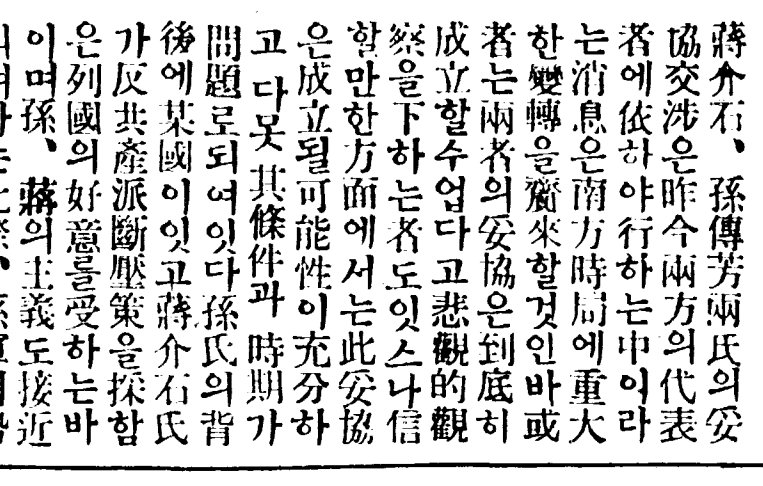 蔣介石、孫傳芳兩氏의妥
協交涉은昨今兩方의代表
者에依하야行하는中이라
는消息은南方時局에重大
한變轉을齎來할것인바或
者는兩者의妥協은到底히
成立할수업다고悲觀的觀
察을下하는者도잇스나信
할만한方面에서는此妥協
은成立될可能性이充分하
고다못其條件과時期가
問題로되여잇다孫氏의背
後에某國이잇고蔣介石氏
가反共產派斷壓策을採함
은列國의好意를受하는바
이며孫、蔣의主義도接近